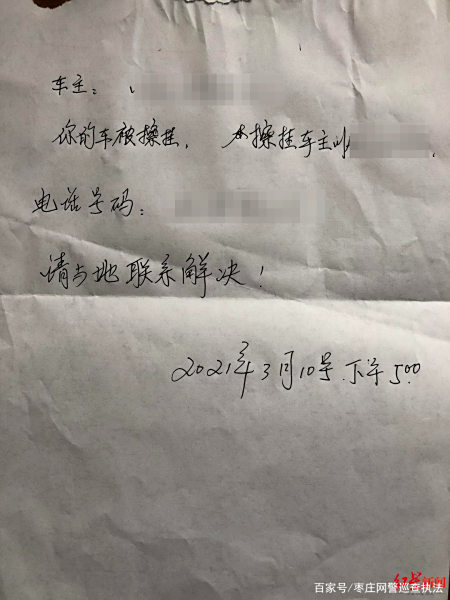 车主：
你的车被擦挂， 擦挂车主
电话号码：
请与她联系解决！
2021年3月10号下午5:00
红星新闻
百家号/枣庄网警巡查执法